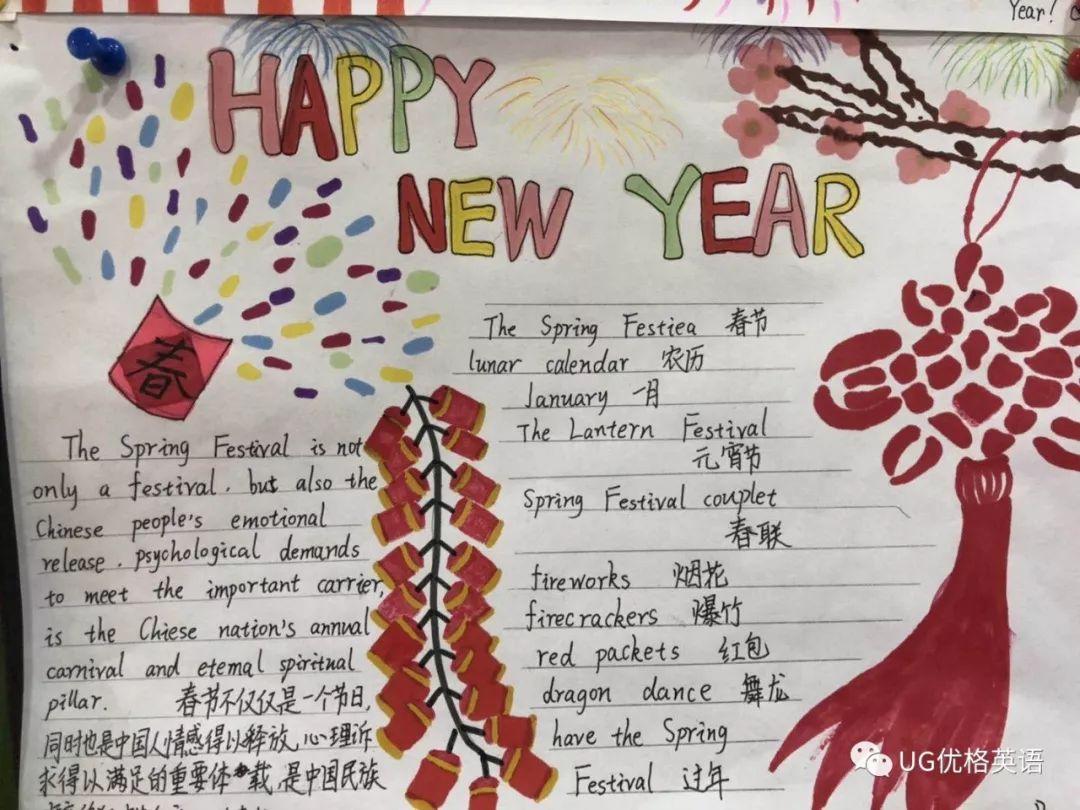 Year!
HAPPY
NEW YEAR
春
The Spring Festival is not
only a festival. but also the
Chinese people's emotional
release. psychological demands
to meet the important carrier,
is the Chiese nation's annual
carnival and etemal spiritual
pillar. 春节不仅仅是一个节日,
同时也是中国人情感得以释放,心理诉
求得以满足的重要体载,是中国民族
The Spring Festiea 春节
lunar calendar 农历
January 一月
The Lantern Festival
元宵节
Spring Festival couplet
春联
fireworks 烟花
firecrackers 爆竹
red packets 红包
dragon dance 舞龙
have the Spring
Festival 过年
UG优格英语